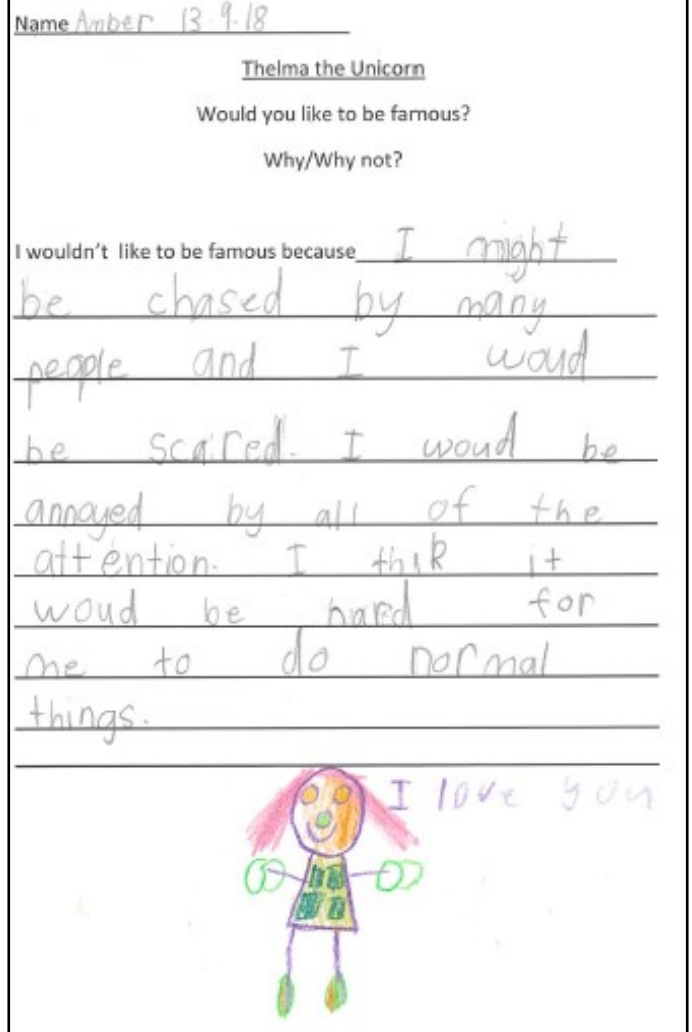 Name Amber 13.9.18
Thelma the Unicorn
Would you like to be famous?
Why/Why not?
I wouldn't like to be famous because I might
be chased by many
people and I woud
be scared. I woud be
annoyed by all of the
attention. I thik it
woud be hard for
me to do normal
things.
I love you